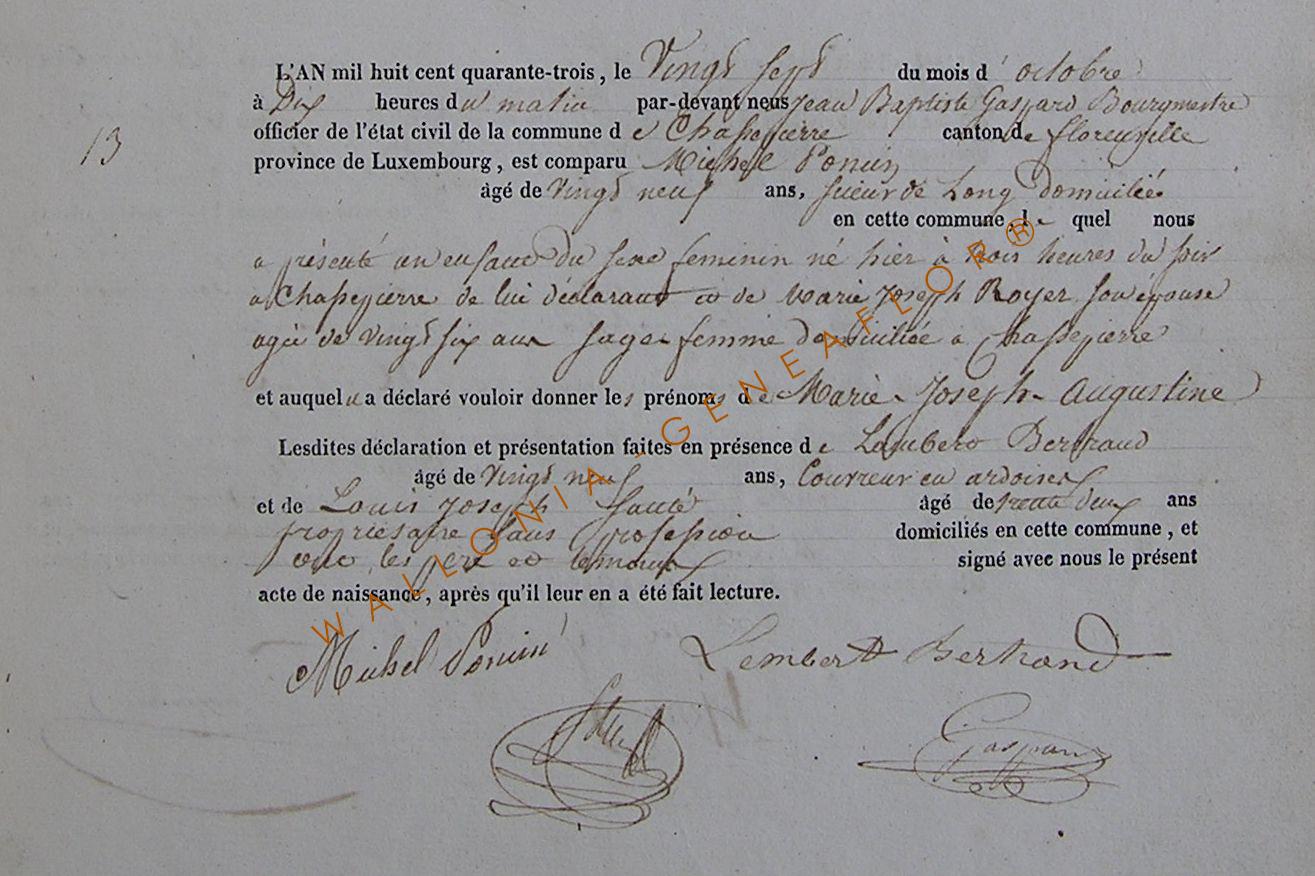 L'AN mil huit cent quarante-trois, le Vingt sept du mois d' octobre
à Dix heures du matin par-devant nous Jean Baptiste Gaspard Bourgmestre
13
officier de l'état civil de la commune de Chassepierre canton de florenville
province de Luxembourg, est comparu Michel Ponin
âgé de Vingt neuf ans, scieur de Long domicilié
en cette commune, le quel nous
a présenté un enfant du sexe feminin né hier à trois heures du soir
a Chassepierre de lui déclarant et de Marie Joseph Royer son épouse
agée de vingt six ans sage femme domiciliée a Chassepierre
et auquel a déclaré vouloir donner les prénoms de Marie Joseph Augustine
Lesdites déclaration et présentation faites en présence de Lambert Bertrand
âgé de Vingt neuf ans, Couvreur en ardoises
et de Louis Joseph âgé de trente deux ans
propriétaire sans profession domiciliés en cette commune, et
ont les père et temoins signé avec nous le présent
acte de naissance, après qu'il leur en a été fait lecture.
Michel Ponin Lembert Bertrand
Gaspard
WALLONIA - GENEAFLOR®